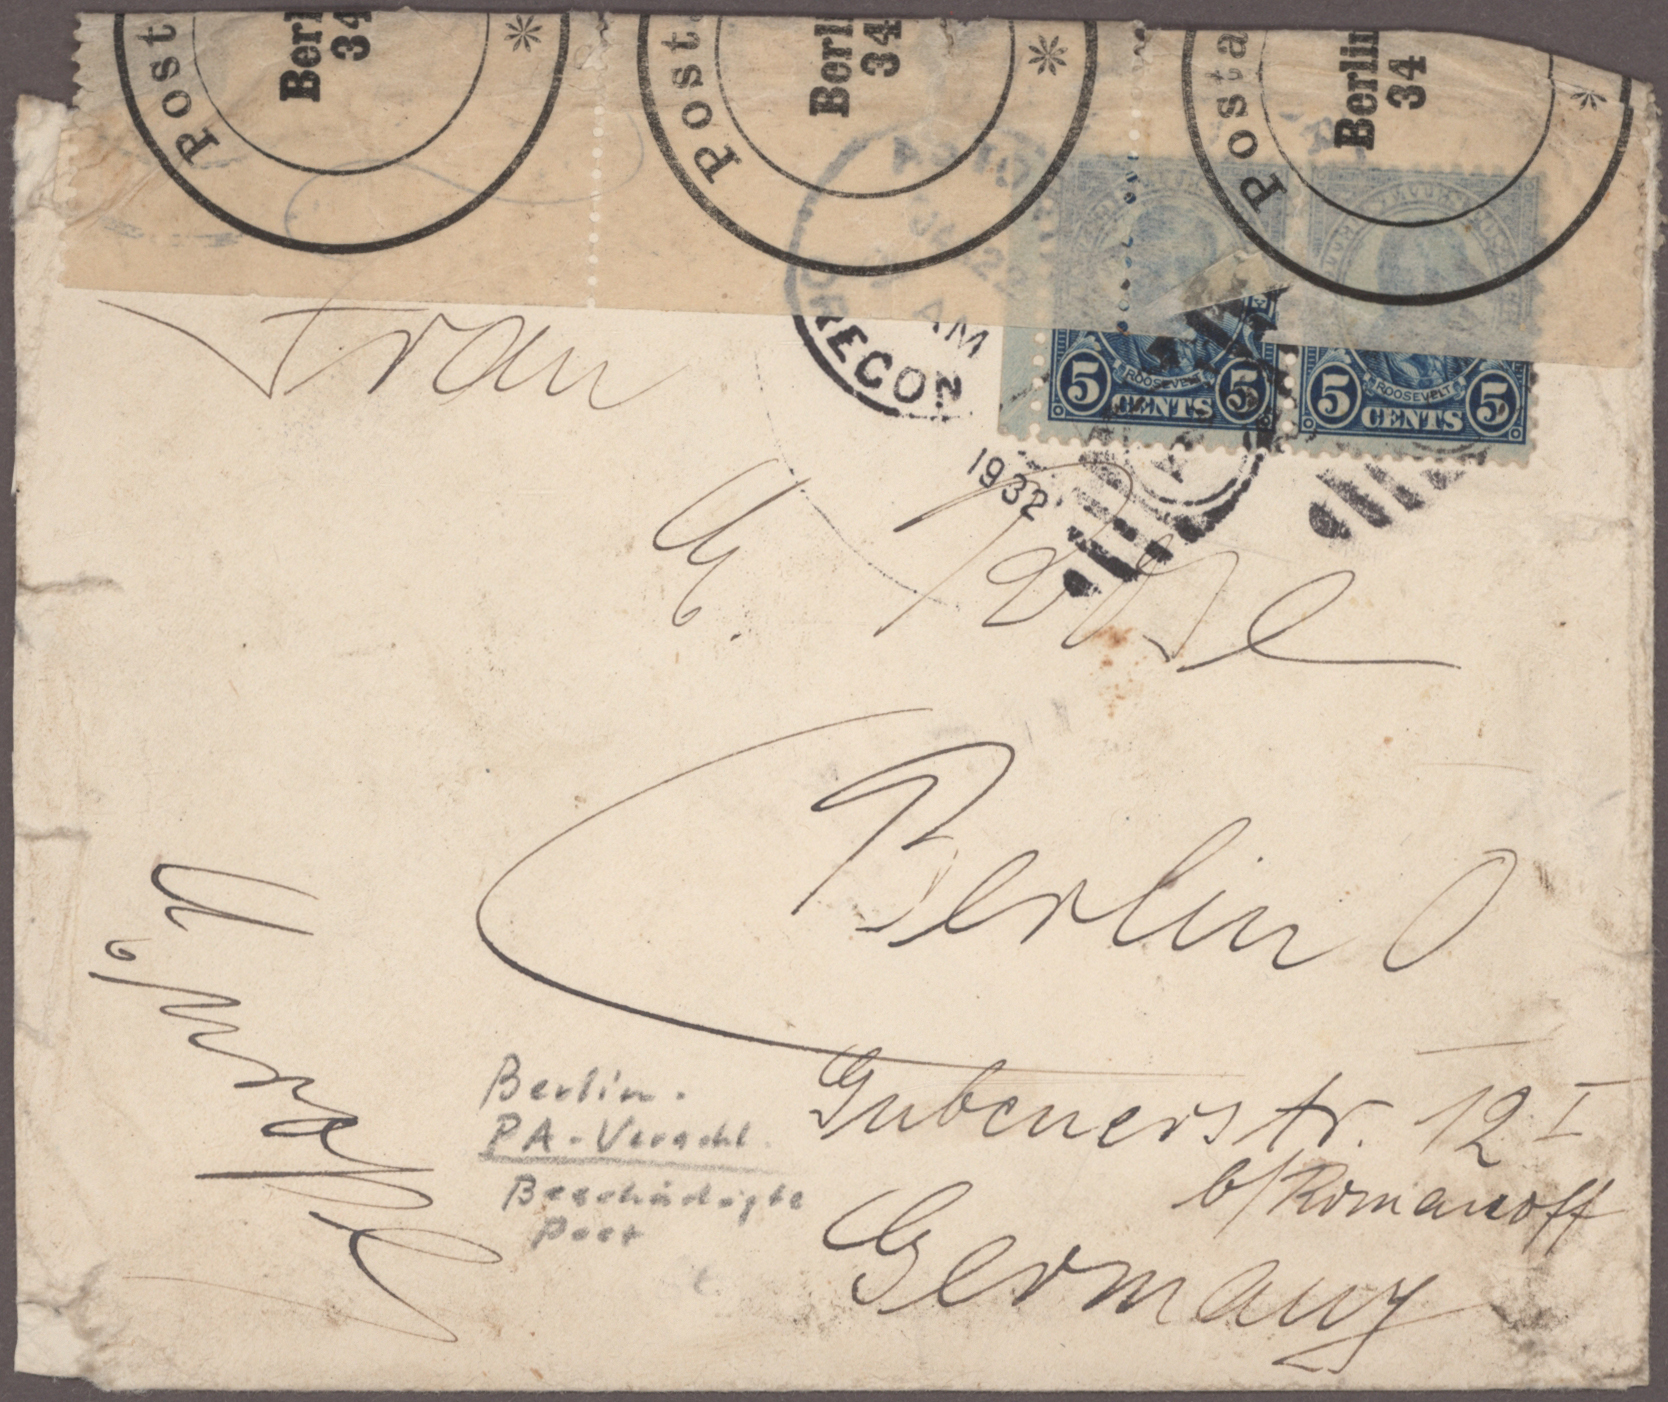 Post
Berl
34
Post
Berl
34
Posta
Berlin
34
OREGON
AM
1932
ROOSEVELT
5 CENTS 5
ROOSEVELT
5 CENTS 5
Frau
Berlin O
Gubenerstr. 12 I
b/Romanoff
Germany
Berlin.
PA-Verschl.
Beschädigte
Post